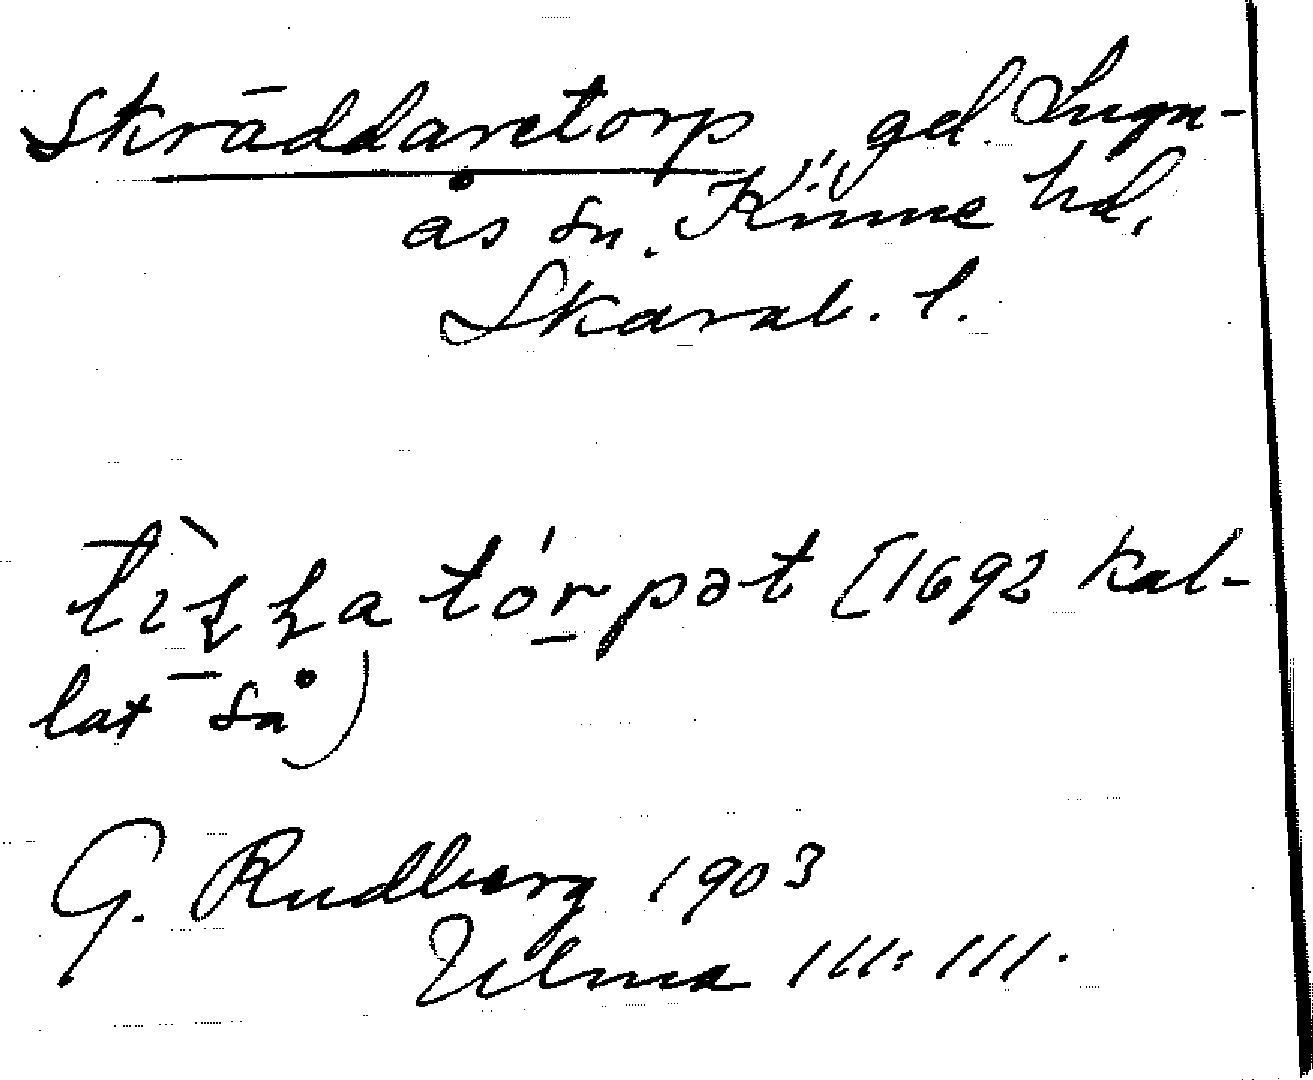 Skräddaretorp, gd. Lugn-
ås sn. Kinne hd,
Skarab. l.
tórpət [1692 kal-
lat så)
G. Rudberg 1903
Ulma 111:111.